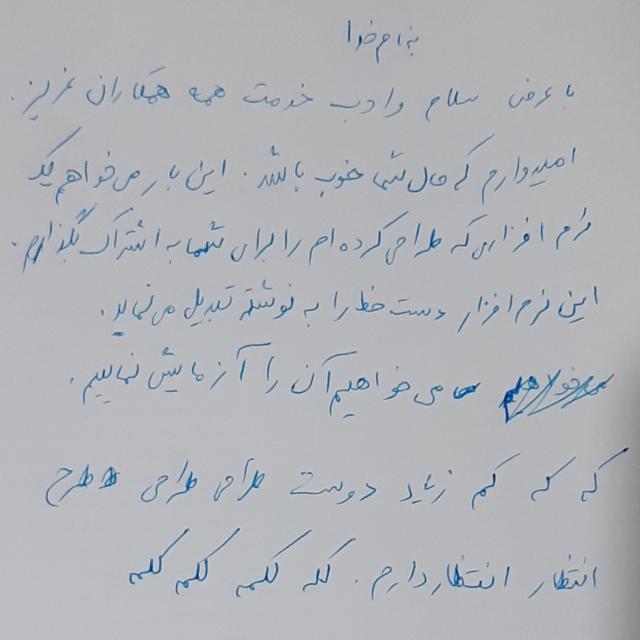 به نام خدا
با عرض سلام و ادب خدمت همه همکاران عزیز.
امیدوارم که حال شما خوب باشد. این بار می‌خواهم یک
نرم افزاری که طراحی کرده ام را برای شما به اشتراک بگذارم.
این نرم افزار دست خط را به نوشته تبدیل می نماید.
می خواهیم آن را آزمایش نماییم.
که که کم زیاد دوست طراحی طراحی طرح
انتظار انتظار دارم. کله کلمه کلمه کلمه